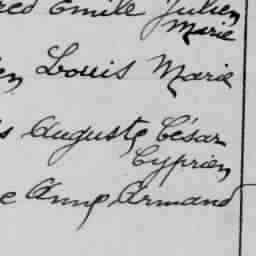 red Emile Julien
Marie
en Louis Marie
s Auguste César
Cyprien
e Anne Armand